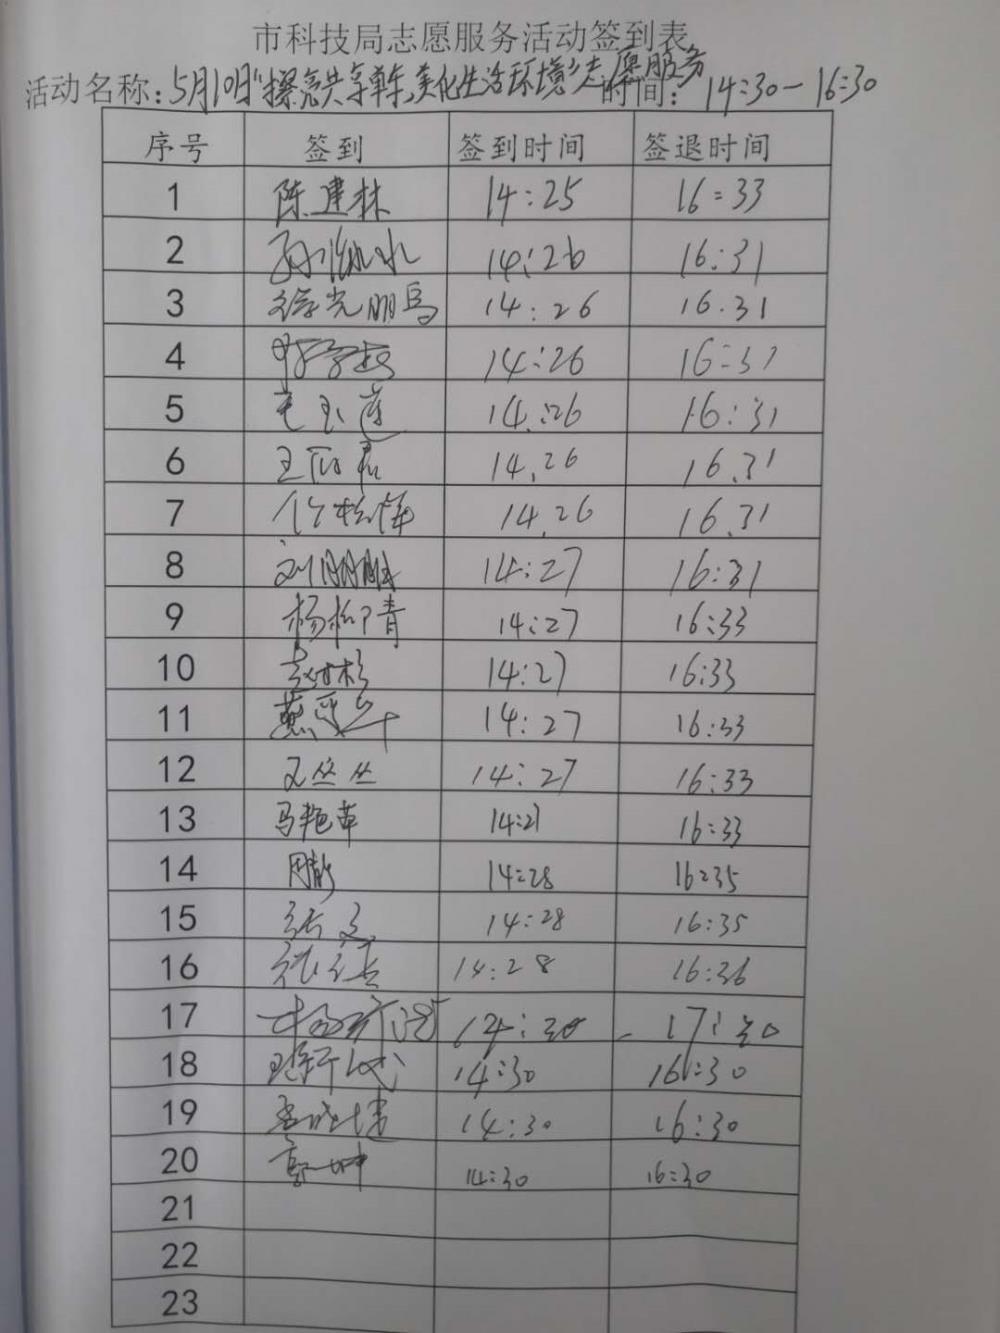 市科技局志愿服务活动签到表
活动名称：5月10日"擦亮共享单车,美化生活环境"志愿服务 时间： 14:30—16:30
序号 签到 签到时间 签退时间
1 陈建林 14:25 16:33
2 14:26 16:31
3 徐光明 14:26 16.31
4 14:26 16:31
5 毛玉莲 14:26 16:31
6 王 14.26 16.31
7 14.26 16.31
8 刘 14:27 16:31
9 杨柳青 14:27 16:33
10 赵彬 14:27 16:33
11 14:27 16:33
12 文丛丛 14:27 16:33
13 马艳革 14:27 16:33
14 14:28 16:35
15 张文 14:28 16:35
16 14:28 16:36
17 14:30 17:30
18 14:30 16:30
19 14:30 16:30
20 郭坤 14:30 16:30
21
22
23